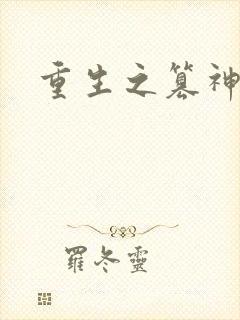 重生之篡神
羅冬靈